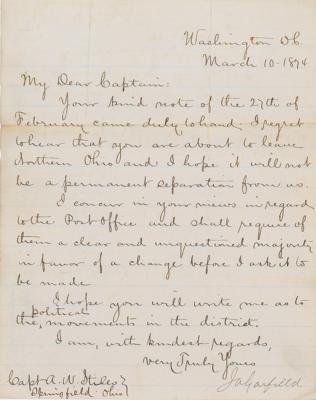 Washington D.C.
March 10-1874
My Dear Captain:
Your kind note of the 27th of
February came duly to hand. I regret
to hear that you are about to leave
Northern Ohio and I hope it will not
be a permanent separation from us.
I concur in your views in regard
to the Post Office and shall require of
them a clear and unquestioned majority
in favor of a change before I ask it to
be made
I hope you will write me as to
political
the, movements in the district.
I am, with kindest regards,
Very Truly Yours
J A Garfield
Capt A. W. Stiles
Springfield Ohio